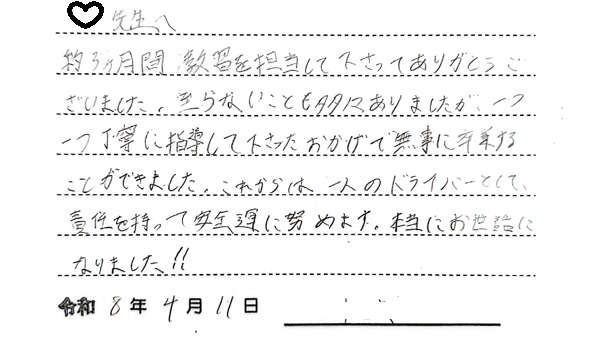 先生へ
約3ヶ月間 教習を担当して下さってありがとうご
ざいました。至らないことも多々ありましたが、一つ
一つ丁寧に指導して下さったおかげで無事に卒業する
ことができました。これからは、一人のドライバーとして、
責任を持って安全運に努めます。本当にお世話に
なりました!!
令和 8 年 4 月 11 日